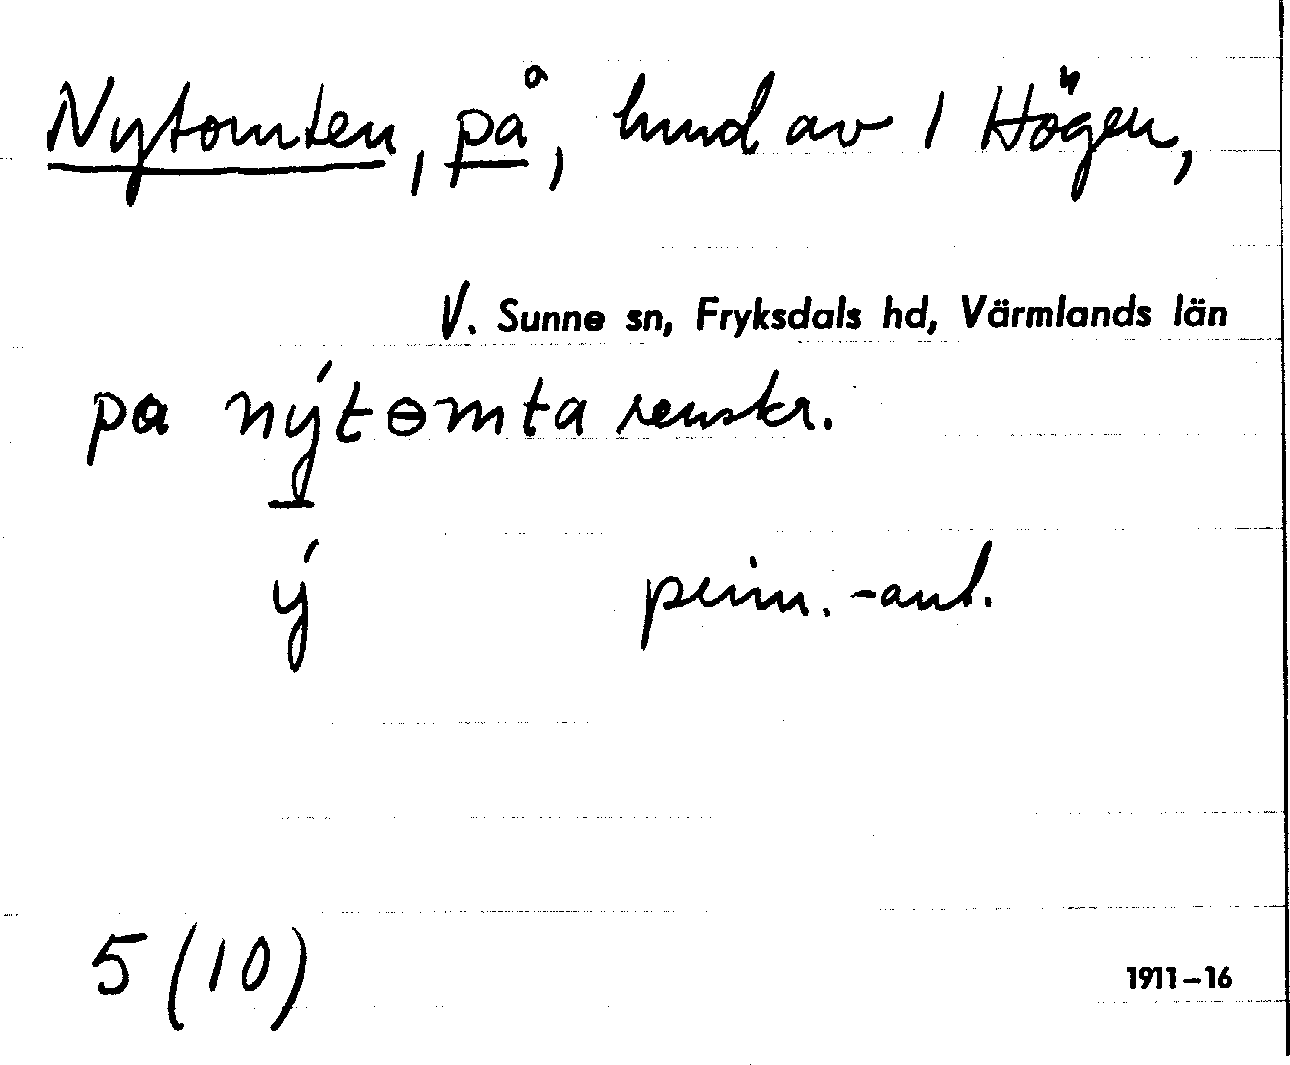 Nytomten, på, hmd av 1 Högen,
V. Sunne sn, Fryksdals hd, Värmlands län
pa nýtɵmta renskr.
ý prim.-ant.
5 (10)
1911–16